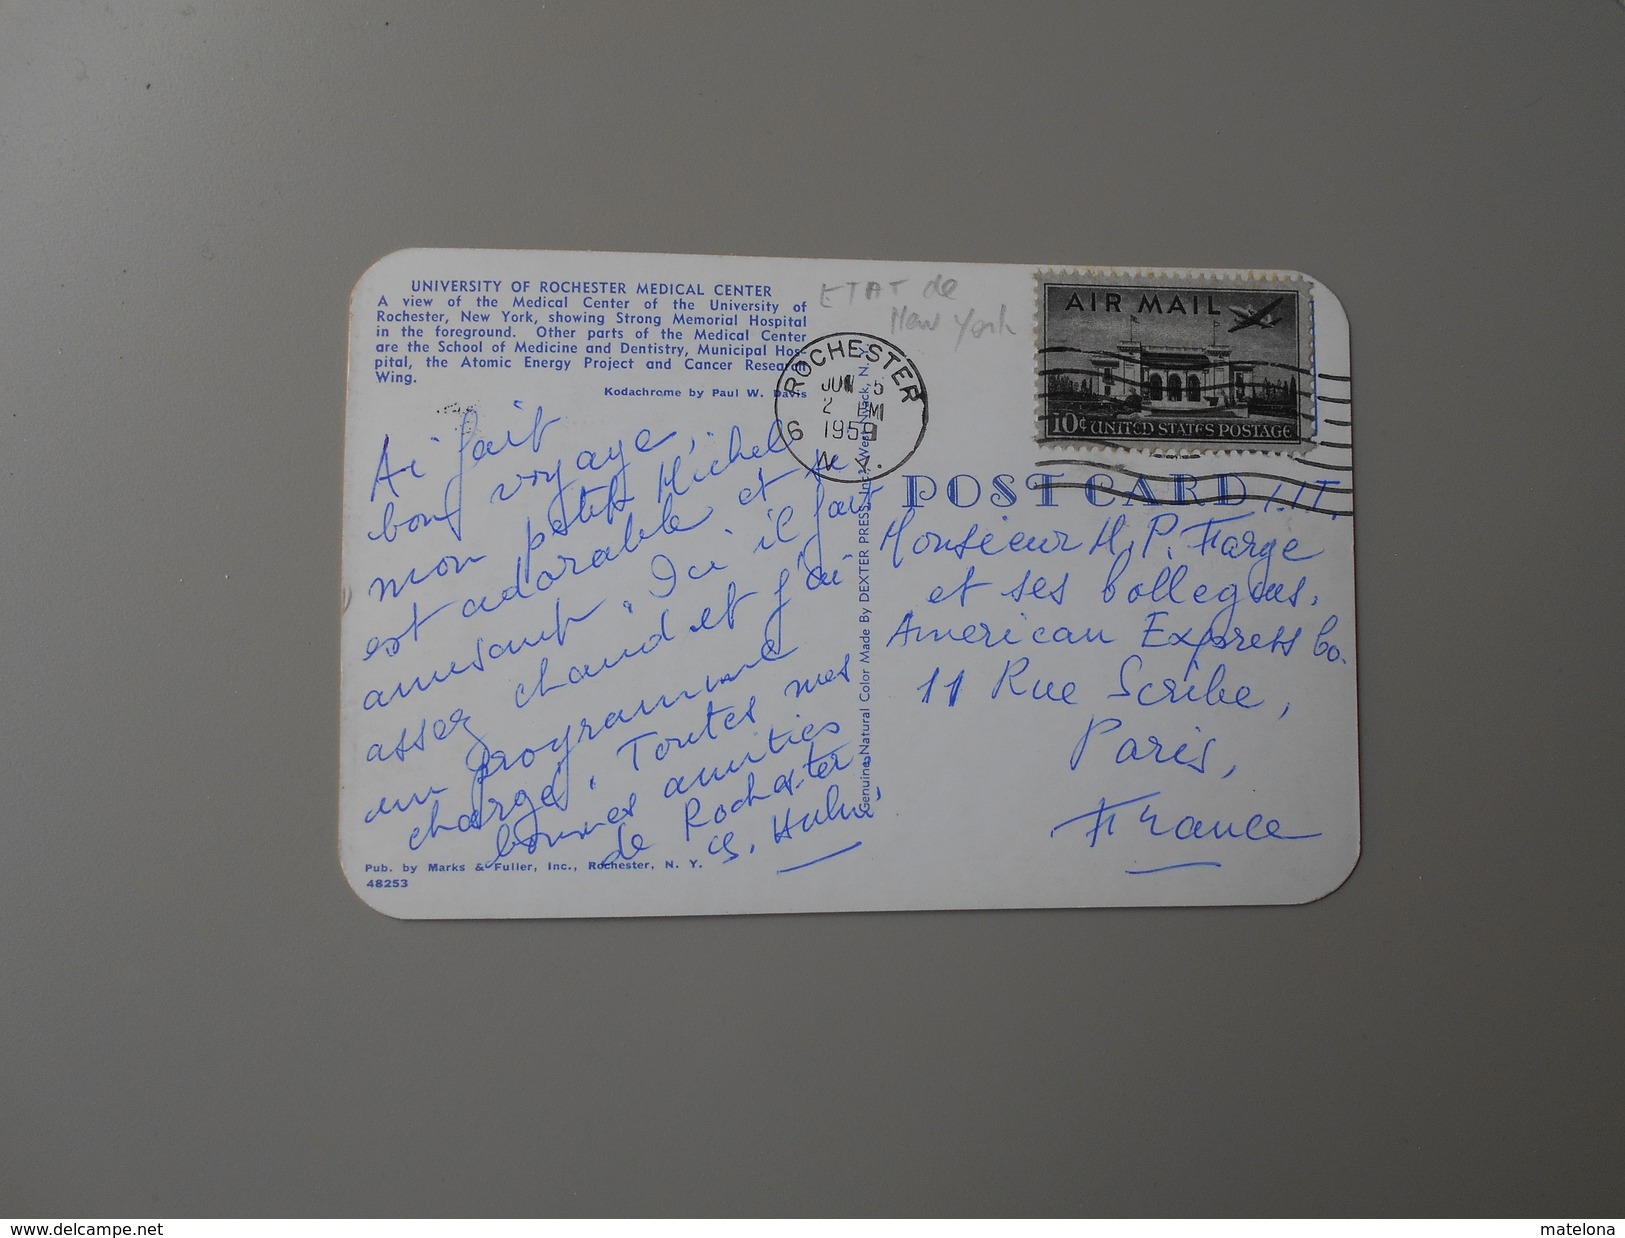 UNIVERSITY OF ROCHESTER MEDICAL CENTER
A view of the Medical Center of the University of
Rochester, New York, showing Strong Memorial Hospital
in the foreground. Other parts of the Medical Center
are the School of Medicine and Dentistry, Municipal Hos-
pital, the Atomic Energy Project and Cancer Research
Wing.
Kodachrome by Paul W. Davis
Ai fait
bon voyage,
mon petit Michel
est adorable et se
amusant. Ici il fait
assez chaud et j'ai
un programme
chargé. Toutes mes
bonnes amitiés
de Rochester
Pub. by Marks & Fuller, Inc., Rochester, N. Y.
48253
Genuine Natural Color Made By DEXTER PRESS, Inc., West Nyack, N. Y.
ETAT de
New York
ROCHESTER
JUN 5
2 PM
1959
6 N.Y.
AIR MAIL
10¢ UNITED STATES POSTAGE
POST CARD
Monsieur H. P. Farge
et ses collegues,
American Express Co.
11 Rue Scribe,
Paris,
France
www.delcampe.net
matelona